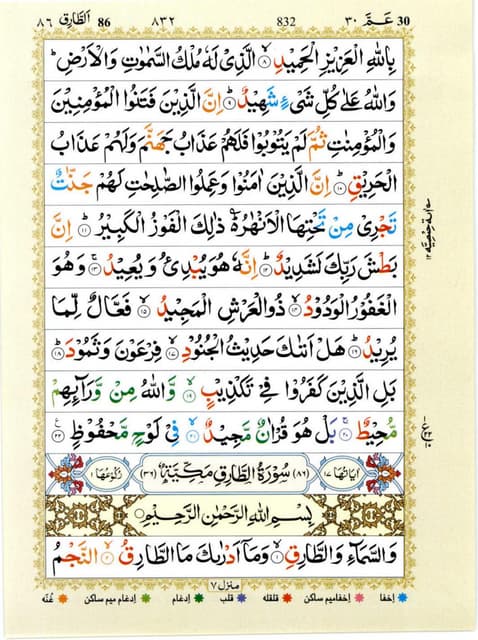 30 عَمَّ ٣٠ 832 ٨٣٢ 86 اَلطَّارِق ٨٦
بِاللّٰهِ الْعَزِيْزِ الْحَمِيْدِ ۙ‏ ﴿۸﴾ الَّذِىْ لَهٗ مُلْكُ السَّمٰوٰتِ وَالْاَرْضِ ؕ
وَاللّٰهُ عَلٰى كُلِّ شَىْءٍ شَهِيْدٌ ؕ‏ ﴿۹﴾ اِنَّ الَّذِيْنَ فَتَنُوا الْمُؤْمِنِيْنَ
وَالْمُؤْمِنٰتِ ثُمَّ لَمْ يَتُوْبُوْا فَلَهُمْ عَذَابُ جَهَنَّمَ وَلَهُمْ عَذَابُ
الْحَرِيْقِ ؕ‏ ﴿۱۰﴾ اِنَّ الَّذِيْنَ اٰمَنُوْا وَعَمِلُوا الصّٰلِحٰتِ لَهُمْ جَنّٰتٌ
تَجْرِىْ مِنْ تَحْتِهَا الْاَنْهٰرُ ؕ ذٰلِكَ الْفَوْزُ الْكَبِيْرُ ؕ‏ ﴿۱۱﴾ اِنَّ
بَطْشَ رَبِّكَ لَشَدِيْدٌ ؕ‏ ﴿۱۲﴾ اِنَّهٗ هُوَ يُبْدِئُ وَيُعِيْدُ ۚ‏ ﴿۱۳﴾ وَهُوَ
الْغَفُوْرُ الْوَدُوْدُ ۙ‏ ﴿۱۴﴾ ذُو الْعَرْشِ الْمَجِيْدُ ۙ‏ ﴿۱۵﴾ فَعَّالٌ لِّمَا
يُرِيْدُ ؕ‏ ﴿۱۶﴾ هَلْ اَتٰٮكَ حَدِيْثُ الْجُنُوْدِ ۙ‏ ﴿۱۷﴾ فِرْعَوْنَ وَثَمُوْدَ ؕ‏ ﴿۱۸﴾
بَلِ الَّذِيْنَ كَفَرُوْا فِىْ تَكْذِيْبٍ ۙ‏ ﴿۱۹﴾ وَّاللّٰهُ مِنْ وَّرَآئِهِمْ
مُّحِيْطٌ ۚ‏ ﴿۲۰﴾ بَلْ هُوَ قُرْاٰنٌ مَّجِيْدٌ ۙ‏ ﴿۲۱﴾ فِىْ لَوْحٍ مَّحْفُوْظٍ ‏ ﴿۲۲﴾
اٰيَاتُهَا ١٧ (٨٦) سُوْرَةُ الطَّارِقِ مَكِّيَّةٌ (٣٦) رُكُوْعُهَا ١
بِسْمِ اللّٰهِ الرَّحْمٰنِ الرَّحِيْمِ
وَالسَّمَآءِ وَالطَّارِقِ ۙ‏ ﴿۱﴾ وَمَاۤ اَدْرٰٮكَ مَا الطَّارِقُ ۙ‏ ﴿۲﴾ النَّجْمُ
منزل ٧
اخفا اخفامیم ساکن قلقله قلب ادغام ادغام میم ساکن غُنّه